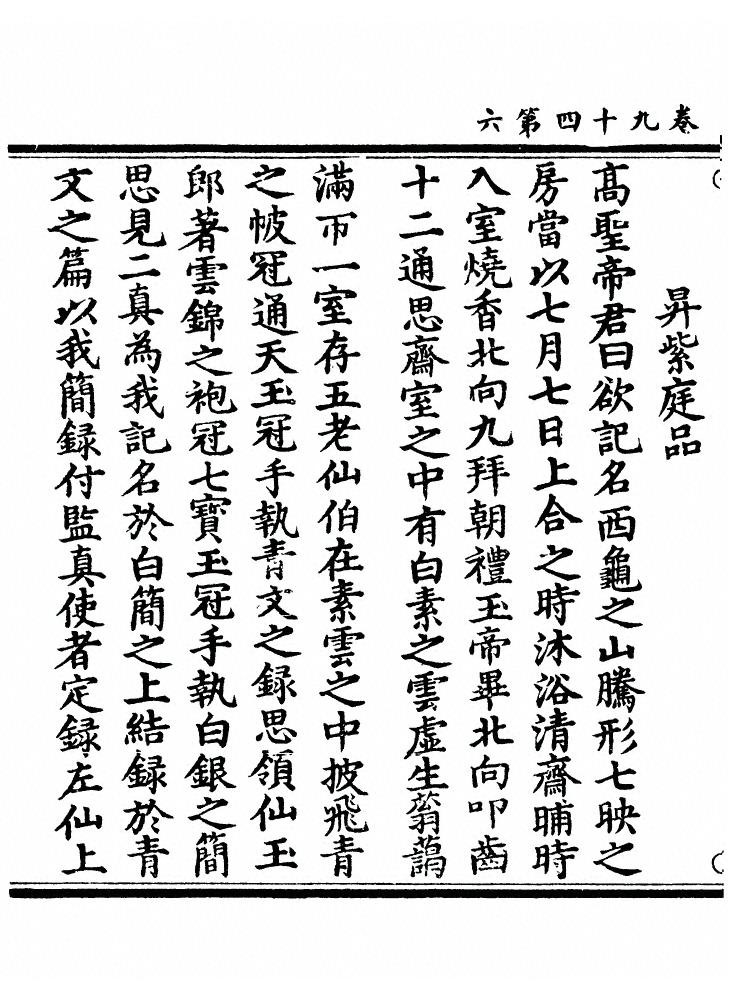 卷九十四第六
昇紫庭品
高聖帝君曰欲記名西龜之山騰形七映之
房當以七月七日上合之時沐浴清齋晡時
入室燒香北向九拜朝禮玉帝畢北向叩齒
十二通思齋室之中有白素之雲虛生蓊藹
滿帀一室存五老仙伯在素雲之中披飛青
之帔冠通天玉冠手執青文之録思領仙玉
郎著雲錦之袍冠七寶玉冠手執白銀之簡
思見二真為我記名於白簡之上結録於青
文之篇以我簡録付監真使者定録左仙上